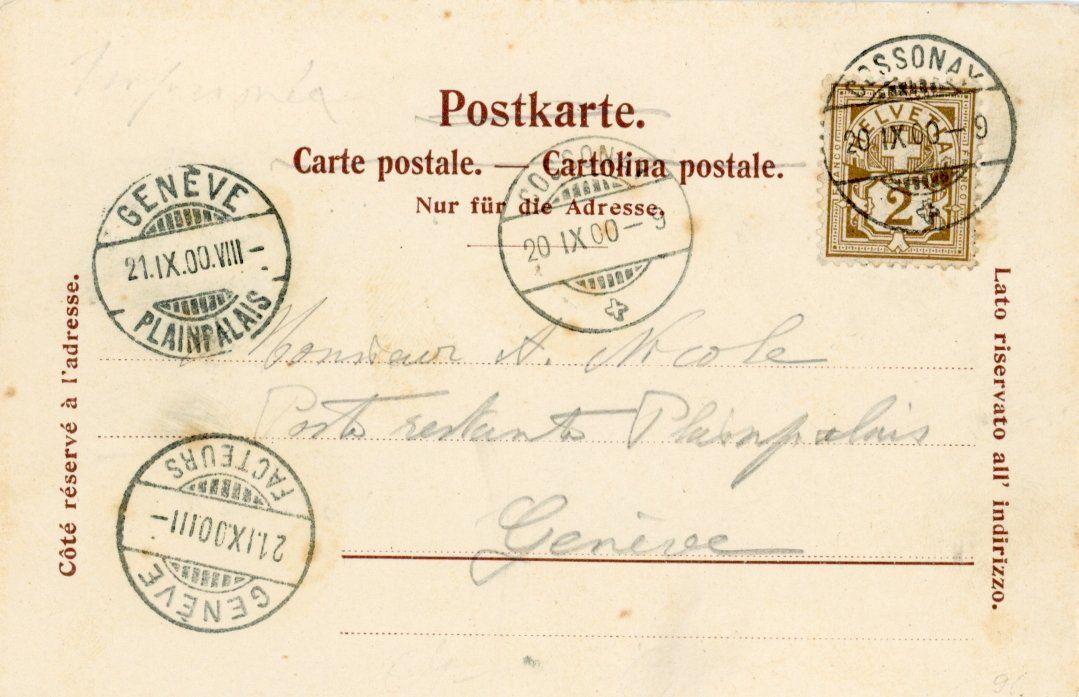 Imprimée
Postkarte.
Carte postale. — Cartolina postale.
Nur für die Adresse.
COSSONAY
20 IX 00 – 9
HELVETIA
2
COSSONAY
20 IX 00 – 9
GENÈVE
21.IX.00.VIII –
PLAINPALAIS
Côté réservé à l'adresse.
Lato riservato all' indirizzo.
Monsieur A. Nicole
Poste restante Plainpalais
Genève
GENÈVE
21.IX.00.III –
FACTEURS